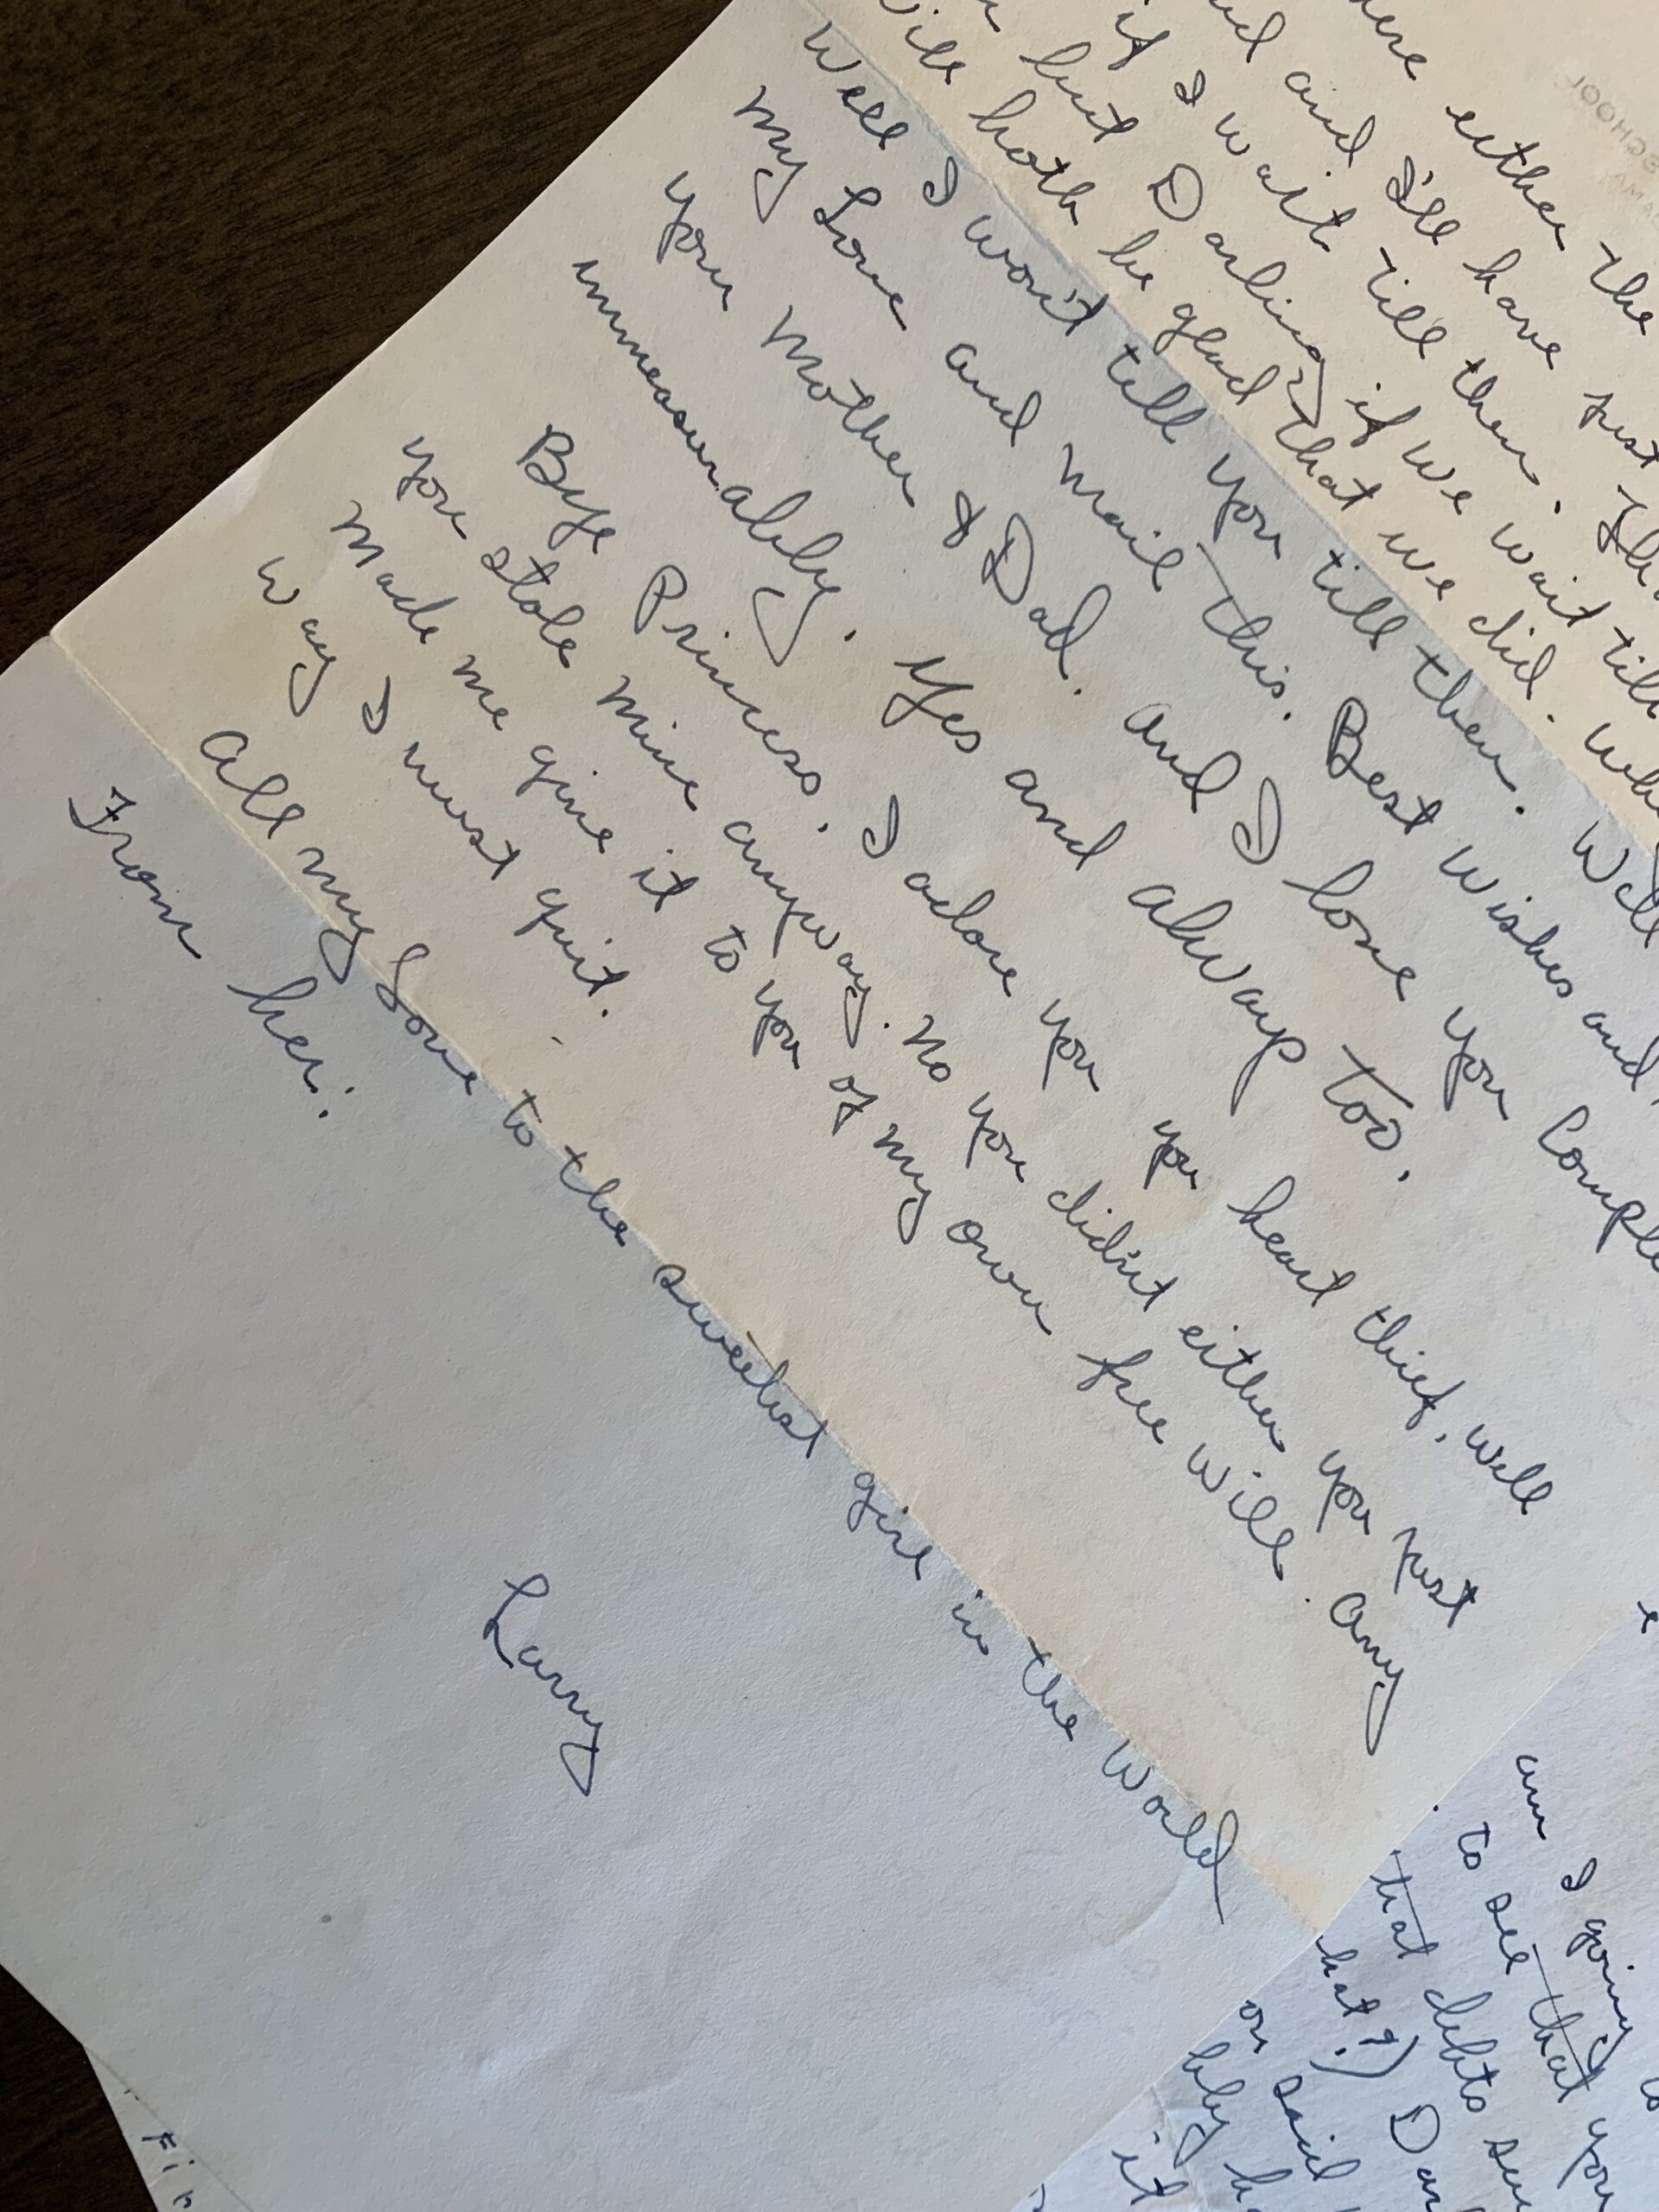 ere either the
and I'll have just
if I wait till then. Th
but Darling if we wait till
will both be glad that we did. Wh
Well I won't tell you till then. Well
my Love and mail this. Best Wishes and
you mother & Dad. and I love you Comple
immeasurably. Yes and always too.
Bye Princess. I adore you you heart thief, well
you stole mine anyway. No you didn't either you just
made me give it to you of my own free will. any
way I must quit.
All my Love to the sweetest girl in the World
From her:
Larry
SCHOOL
am I going
to see that you
that debts
hat?) Dar
on said
bly h
it
Fin